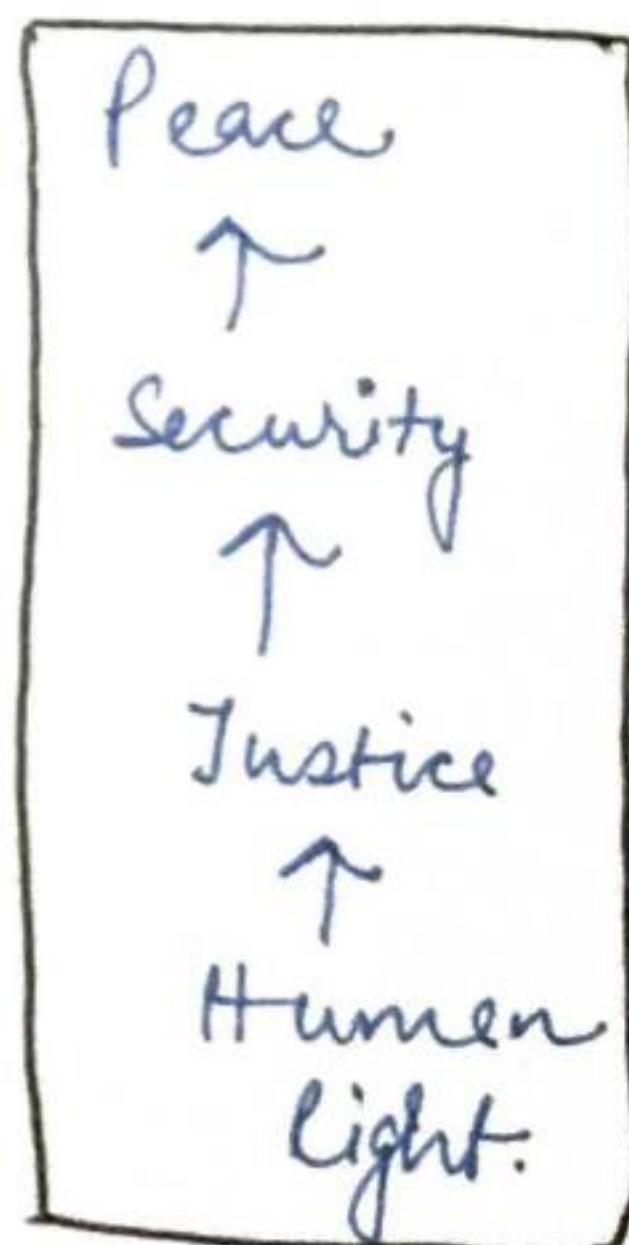 Peace
↑
Security
↑
Justice
↑
Humen
Right.